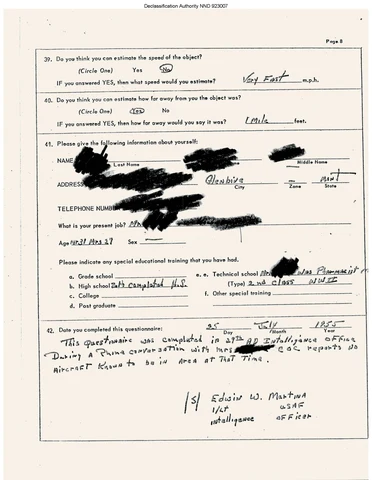 Declassification Authority NND 923007
Page 8
39. Do you think you can estimate the speed of the object?
(Circle One) Yes No
IF you answered YES, then what speed would you estimate? Very Fast m.p.h.
40. Do you think you can estimate how far away from you the object was?
(Circle One) Yes No
IF you answered YES, then how far away would you say it was? 1 Mile feet.
41. Please give the following information about yourself:
NAME
Last Name Middle Name
ADDRESS Glendive Mont
City Zone State
TELEPHONE NUMB
What is your present job?
Age Mr 31 Mrs 27 Sex
Please indicate any special educational training that you have had.
a. Grade school e. Technical school was Pharmacist
b. High school Both completed H.S. (Type) 2nd class WWII
c. College f. Other special training
d. Post graduate
42. Date you completed this questionnaire: 25 July 1955
Day Month Year
This Questionnaire was completed in 29th AD Intelligence office
During A Phone conversation with Mrs COC reports no
Aircraft known to be in Area at That Time.
/S/ Edwin W. Martina
1/Lt USAF
Intelligence Officer